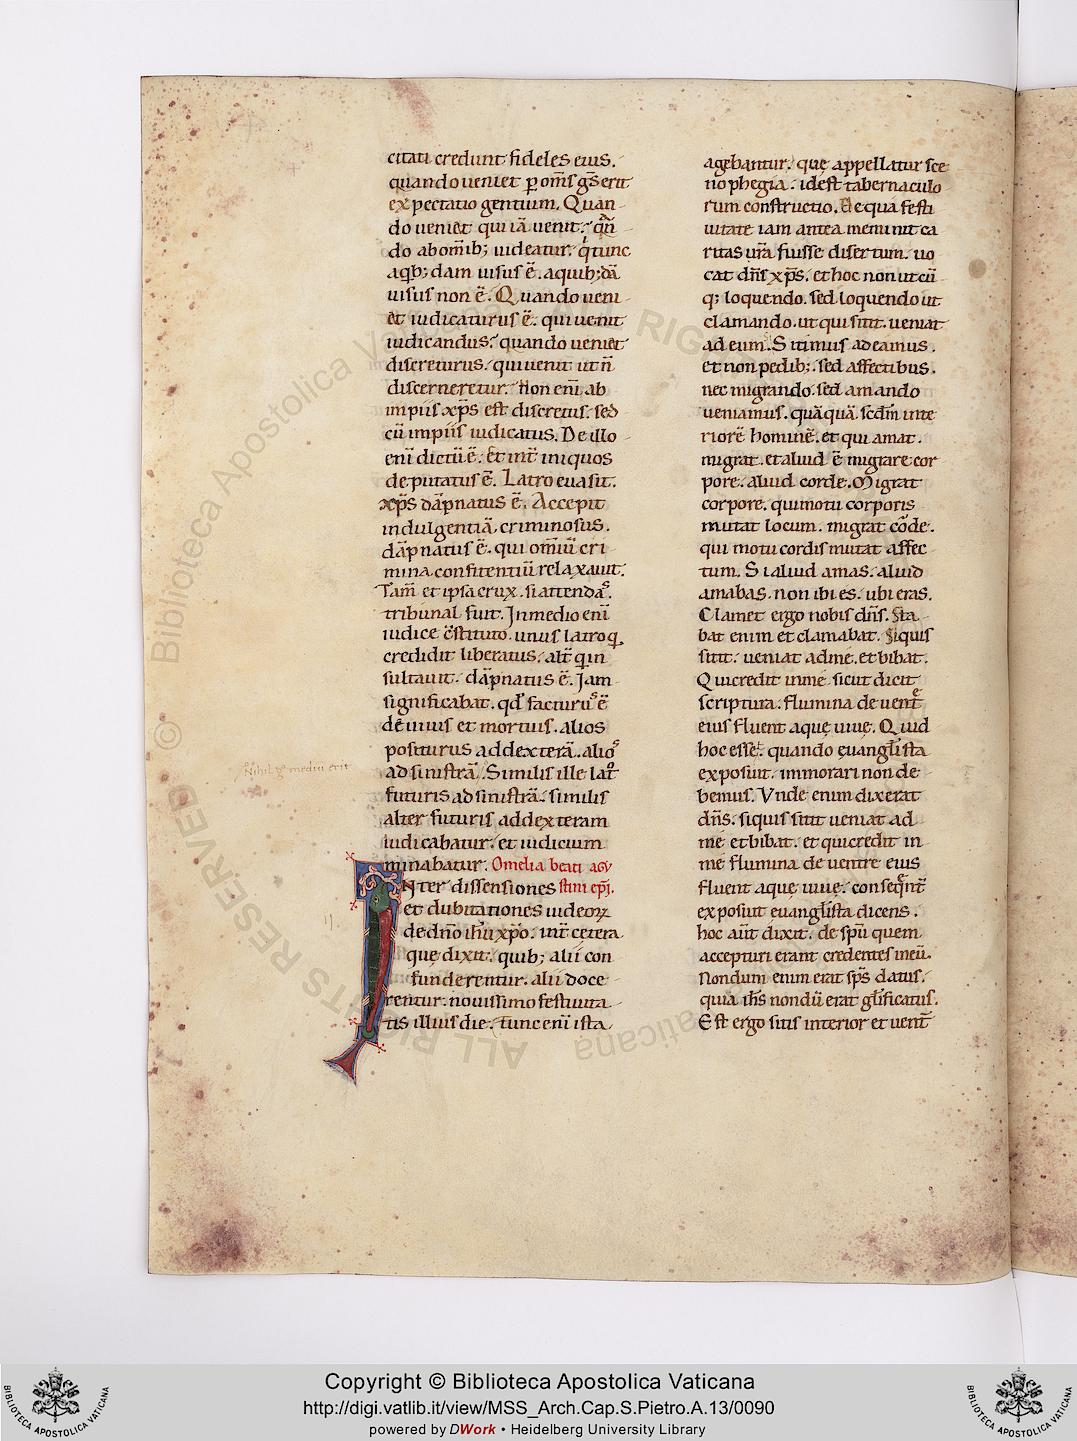 citati credunt fideles eius.
quando ueniet p om̄s gs̄ erit
expectatio gentium. Quan
do ueniet qui iā uenit. qn̄
do ab om̄ib; uideatur. q tunc
a qb; dam uisus ē. a quib; dā
uisus non ē. Quando ueni
et iudicaturus ē. qui uenit
iudicandus. quando ueniet
discreturus. qui uenit ut n̄
discerneretur. Non eni ab
impiis xp̄s est discretus. sed
cū impiis iudicatus. De illo
eni dictū ē. Et int̄ iniquos
deputatus ē. Latro euasit.
xp̄s dāpnatus ē. Accepit
indulgentiā criminosus.
dāpnatus ē. qui omiū cri
mina confitentiū relaxauit.
Tam̄ et ipsa crux. si attendas.
tribunal fuit. In medio eni
iudice cstituto. unus latro q
credidit liberatus. alt̄ q in
sultauit. dāpnatus ē. Iam
significabat. qd facturus ē
de uiuis et mortuis. alios
positurus ad dexterā. alios
ad sinistrā. Similis ille lat
futuris ad sinistrā. similis
alter futuris ad dexteram
iudicabatur. et iudicium
minabatur. Omelia beati agu
Nter dissensiones stini epi.
et dubitationes iudeoꝝ
de dn̄o ih̄u xp̄o. int̄ cetera
que dixit. quib; alii con
funderentur. alii doce
rentur. nouissimo festiuita
tis illius die. tunc eni ista
Nihil g medui erit
agebantur. quę appellatur sce
nophegia. idest tabernaculo
rum constructio. De qua festi
uitate iam antea meminit ca
ritas ur̄a fuisse disertum. uo
cat dn̄s xp̄s. et hoc non utcū
q; loquendo. sed loquendo ut
clamando. ut qui sitit. ueniat
ad eum. Sitimus adeamus.
et non pedib;. sed affectibus.
nec migrando. sed amando
ueniamus. quāquā scdm inte
riorē hominē. et qui amat.
migrat. et aliud ē migrare cor
pore. aliud corde. Migrat
corpore. qui motu corporis
mutat locum. migrat corde.
qui motu cordis mutat affec
tum. Si aliud amas. aliud
amabas. non ibi es. ubi eras.
Clamet ergo nobis dn̄s. Sta
bat enim et clamabat. Siquis
sitit. ueniat ad me. et bibat.
Qui credit in me sicut dicit
scriptura. flumina de uentre
eius fluent aquę uiuę. Quid
hoc esset. quando euanglista
exposuit. immorari non de
bemus. Vnde enim dixerat
dn̄s. siquis sitit ueniat ad
me et bibat. et qui credit in
me flumina de uentre eius
fluent aquę uiuę. conseqnt̄
exposuit euanglista dicens.
hoc aūt dixit. de sp̄u quem
accepturi erant credentes in eū.
Nondum enim erat sp̄s datus.
quia ih̄s nondū erat glificatus.
Est ergo sitis interior et uent̄
Biblioteca Apostolica Vaticana
ALL RIGHTS RESERVED ©
Copyright © Biblioteca Apostolica Vaticana
http://digi.vatlib.it/view/MSS_Arch.Cap.S.Pietro.A.13/0090
powered by DWork • Heidelberg University Library
BIBLIOTECA APOSTOLICA VATICANA
BIBLIOTECA APOSTOLICA VATICANA